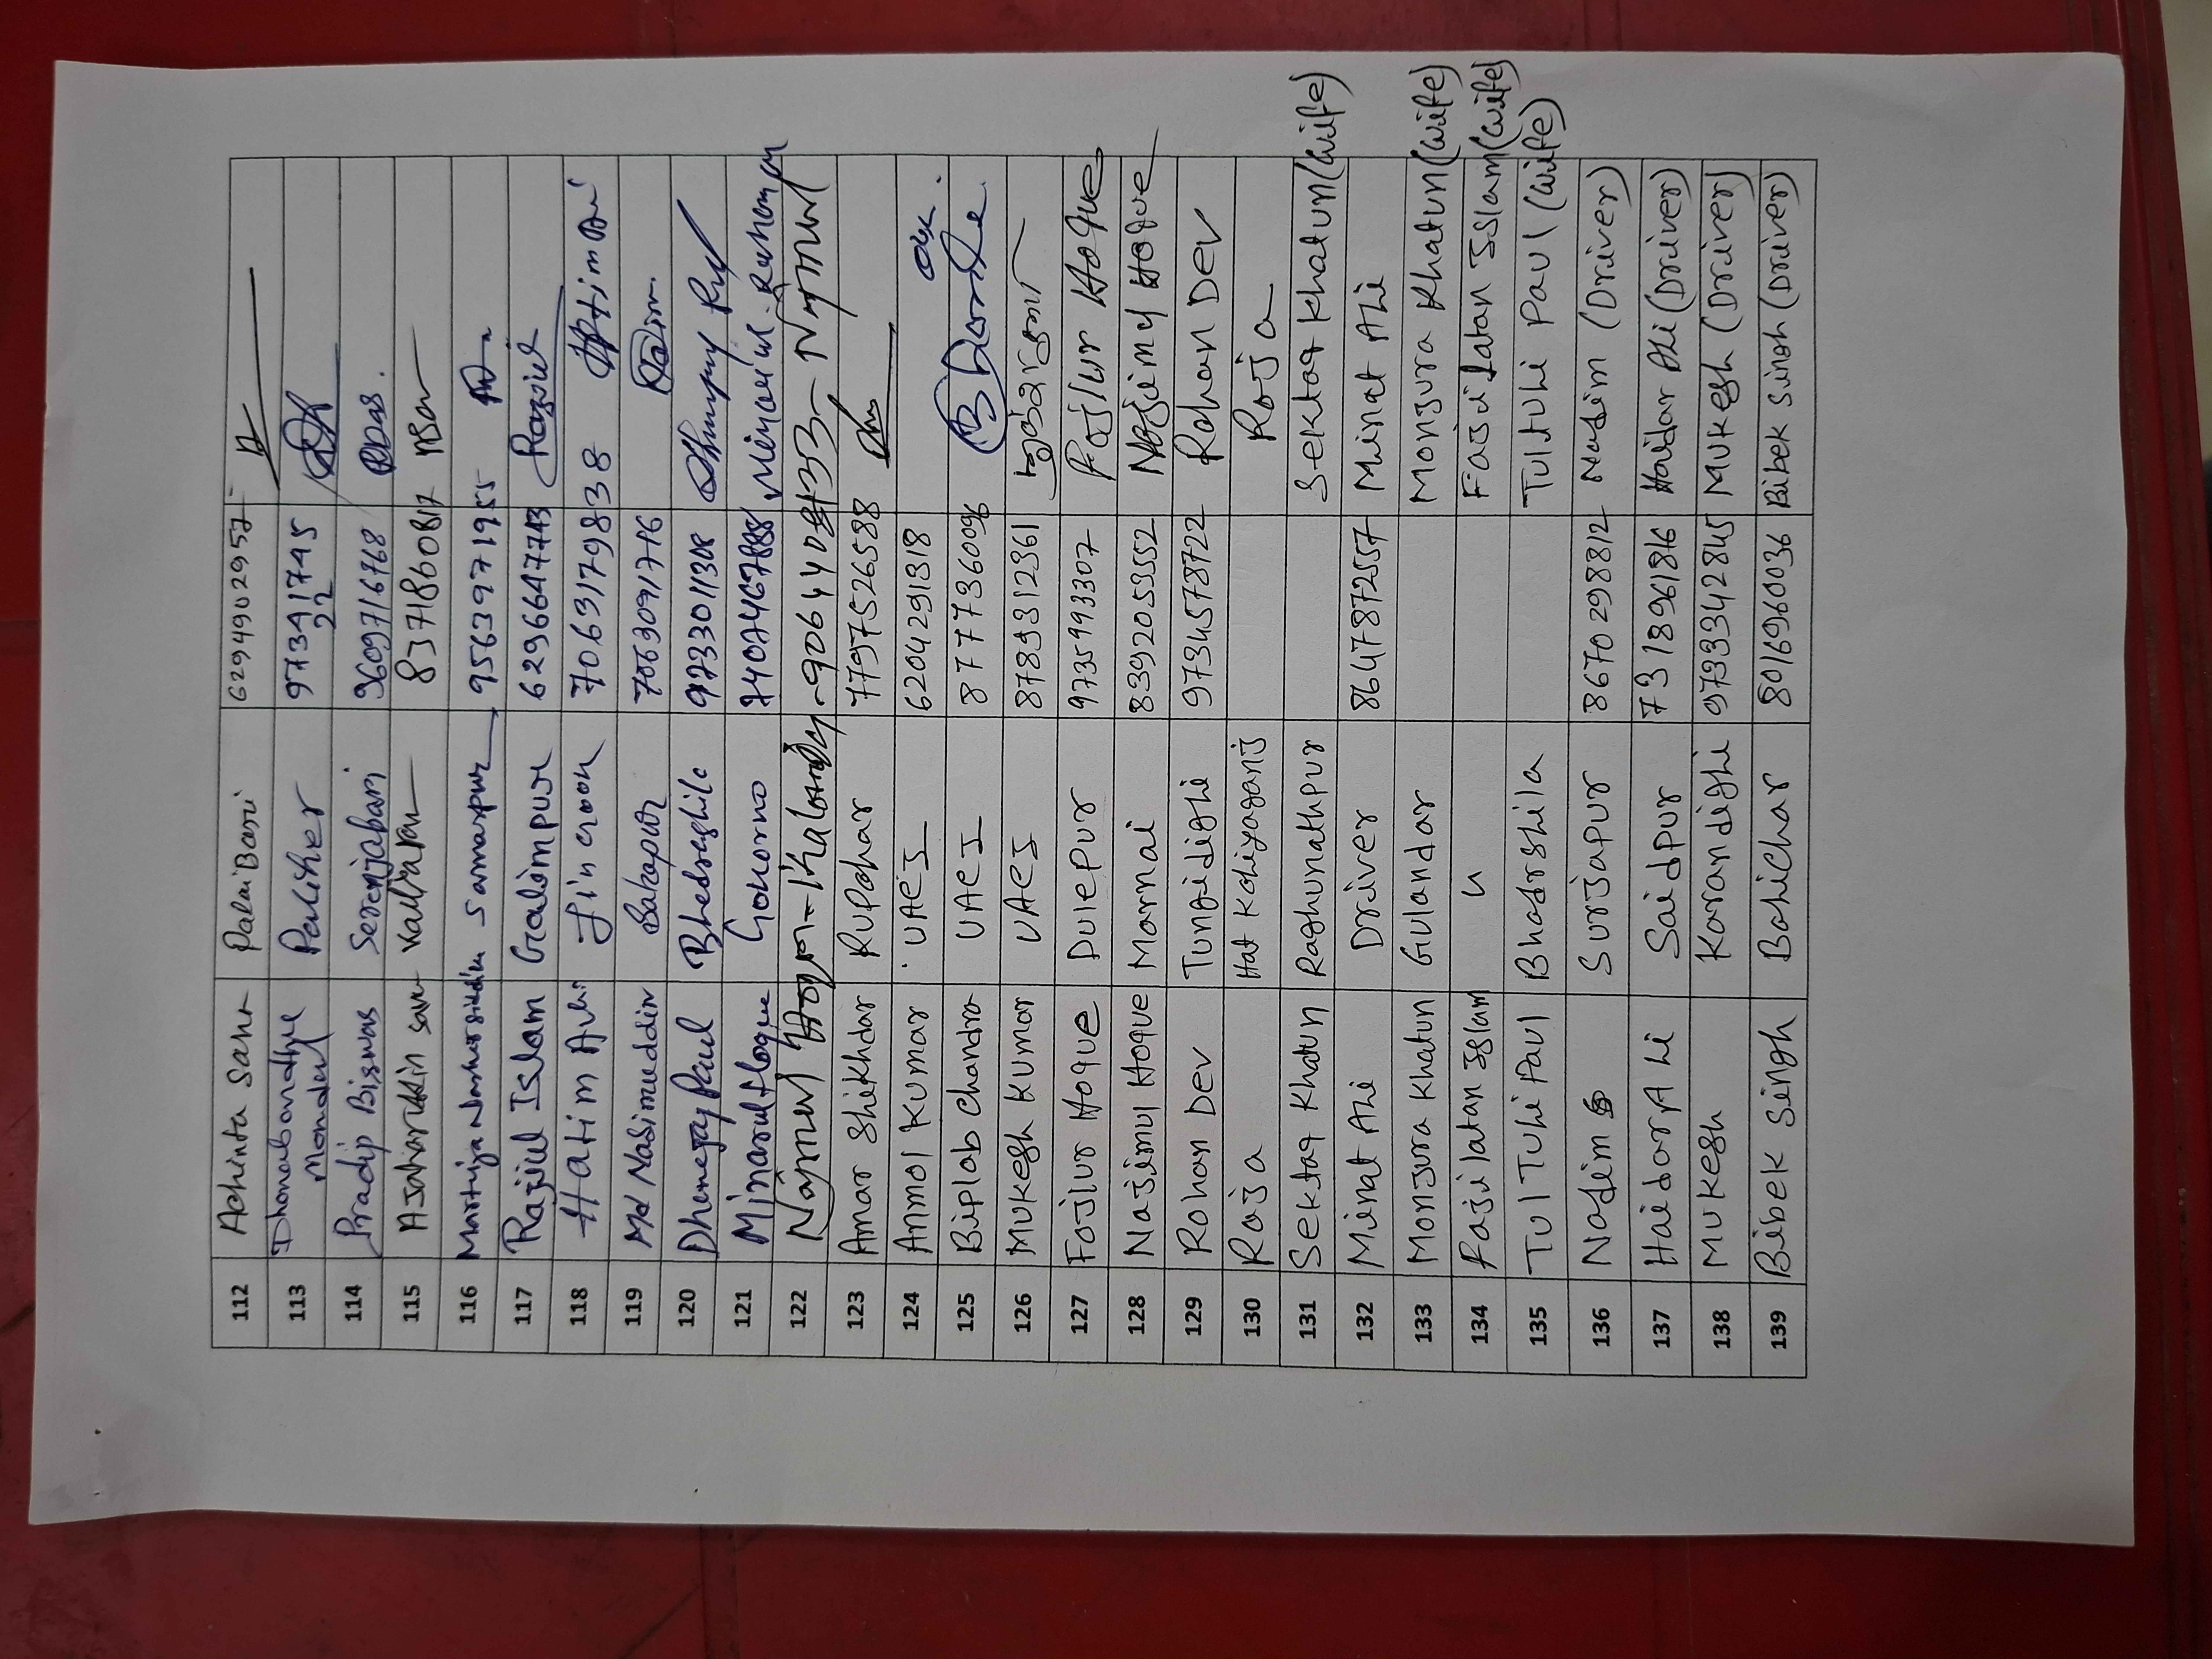 112 Achinta Sarkar Palaibari 6294902957
113 Dhonobandhu Mondal Palıher 9734174522
114 Pradip Biswas Serenjabari 9609716768 PDas.
115 Kaliaran 8371860817
116 Samaspur 9563971955
117 Rajiul Islam Galimpur 6296647743 Rajiul
118 Hatim Ali 7063179838 Hatim Ali
119 Md Nasimueddin Bahapur 7063091776
120 Dhenejay Paul Bhedraghile 9733011308
121 Minarul Hoque Gokorno
122 Najmul Hoque Najmul
123 Amar Shikhdar Rupahar 7797526588
124 Anmol Kumar UAEJ 6204291318
125 Biplab Chandra UAEJ 8777360096
126 Mukesh Kumar UAEJ 8789312361
127 Fojlur Hoque Dulepur 9735993307 Fojlur Hoque
128 Najimul Hoque Marnai 8392053552 Najimul Hoque
129 Rohan Dev Tungidighi 9734578722 Rohan Dev
130 Roja Hat Kaliyaganj Roja
131 Sektaq Khatun Raghunathpur Sektaq Khatun (wife)
132 Minat Ali Driver 8647872557 Minat Ali
133 Monjura Khatun Gulandar Monjura Khatun (wife)
134 Fajilatan Islam " Fajilatan Islam (wife)
135 Tul Tuli Paul Bhadrshila Tultuli Paul (wife)
136 Nadim Surjapur 8670298812 Nadim (Driver)
137 Haidar Ali Saidpur 7318961816 Haidar Ali (Driver)
138 Mukesh Karandighi 9733342845 Mukesh (Driver)
139 Bibek Singh Bahichar 8016960036 Bibek Singh (Driver)